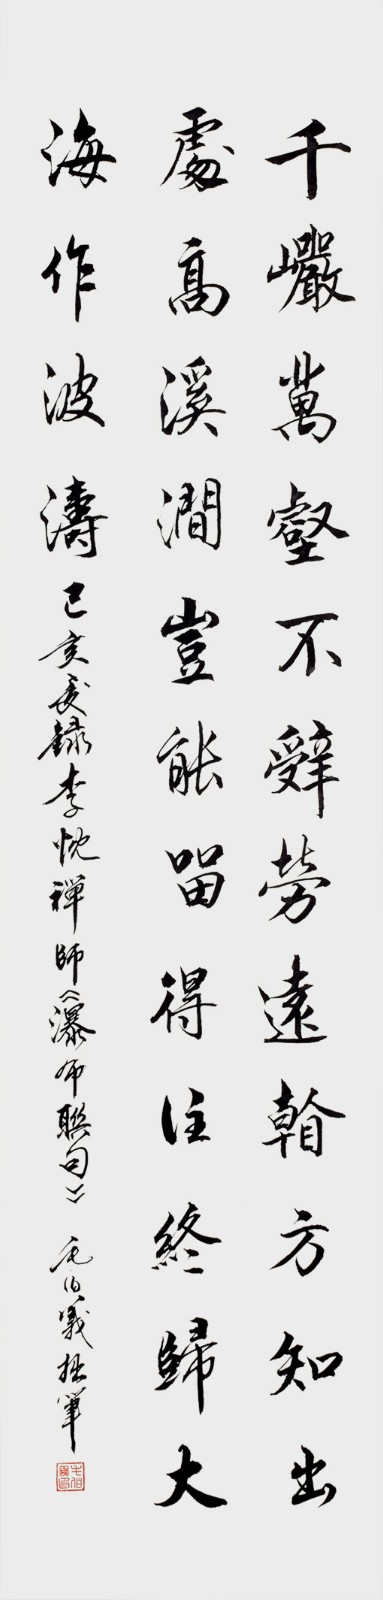 千巖萬壑不辤勞遠看方知出
處高溪澗豈能留得住終歸大
海作波濤 己亥爰録李忱禪師《瀑布聯句》 毛伯義拙筆